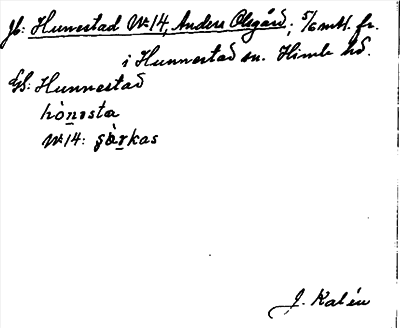 Jb: Hunnestad Nr 14, Anders Olsgård; 5/6 mtl. fr.
i Hunnestad sn. Himle hd.
Gs: Hunnestad
hònesta
Nr 14:
J. Kalén